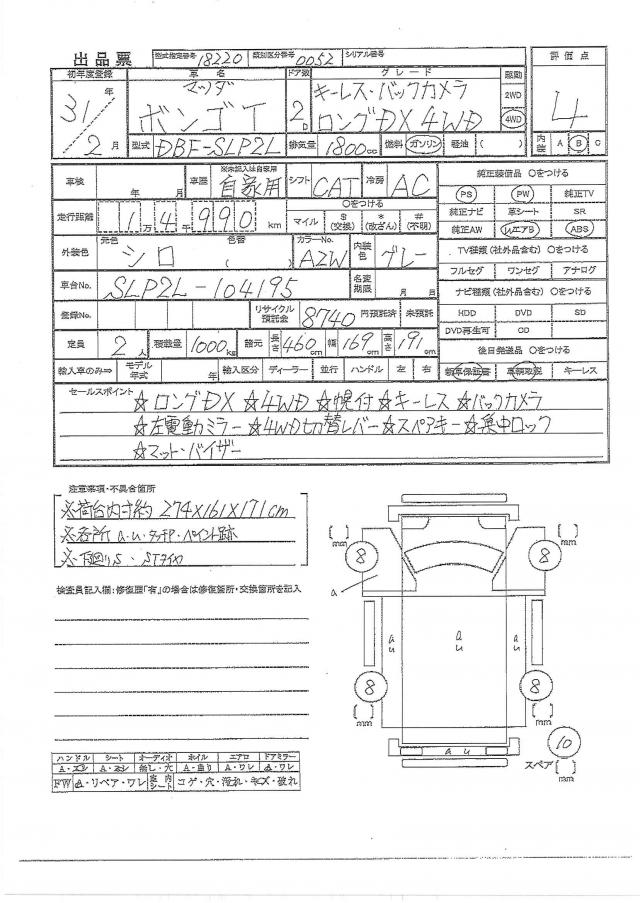 出品票 型式指定番号 18220 類別区分番号 0052 シリアル番号
初年度登録 車名 ドア数 グレード 駆動 評価点
31年 マツダ 2D キーレス・バックカメラ 2WD 4
2月 ボンゴT ロングDX 4WD 4WD
型式 DBF-SLP2L 排気量 1800cc 燃料 ガソリン 軽油 ( ) 内装 A B C
車検 年 月 車歴 ※未記入は自家用 自家用 シフト CAT 冷房 AC
走行距離 1万4千990km ○をつける マイル $(交換) *(改ざん) #(不明)
外装色 元色 シロ 色替 ( ) カラーNo. A2W 内装色 グレー
車台No. SLP2L-104195 名変期限 月 月
登録No. リサイクル預託金 8740 円預託済 未預託
定員 2人 積載量 1000kg 諸元 長さ 460cm 幅 169cm 高さ 191cm
輸入車のみ⇒ モデル年式 年 輸入区分 ディーラー 並行 ハンドル 左 右
純正装備品 ○をつける
PS PW 純正TV
純正ナビ 革シート SR
純正AW エアB ABS
TV種類(社外品含む) ○をつける
フルセグ ワンセグ アナログ
ナビ種類(社外品含む) ○をつける
HDD DVD SD
DVD再生可 CD
後日発送品 ○をつける
新車保証書 車輌取説 キーレス
セールスポイント ☆ロングDX ☆4WD ☆幌付 ☆キーレス ☆バックカメラ
☆左電動ミラー ☆4WD切替レバー ☆スペアキー ☆集中ロック
☆マット・バイザー
注意事項・不具合箇所
※荷台内寸約 274×161×171cm
※各所 a.u.タッチP・ペイント跡
※下回りS・STタイヤ
検査員記入欄:修復歴「有」の場合は修復箇所・交換箇所を記入
[ ] mm 8 8 [ ] mm
a
au au au
8 8
[ ] mm [ ] mm
au
10
スペア [ ] mm
ハンドル シート オーディオ ホイル エアロ ドアミラー
A・スレ A・スレ 無し・穴 A・曲り A・ワレ A・ワレ
FW A・リペア・ワレ 室内シート コゲ・穴・汚れ・キズ・破れ